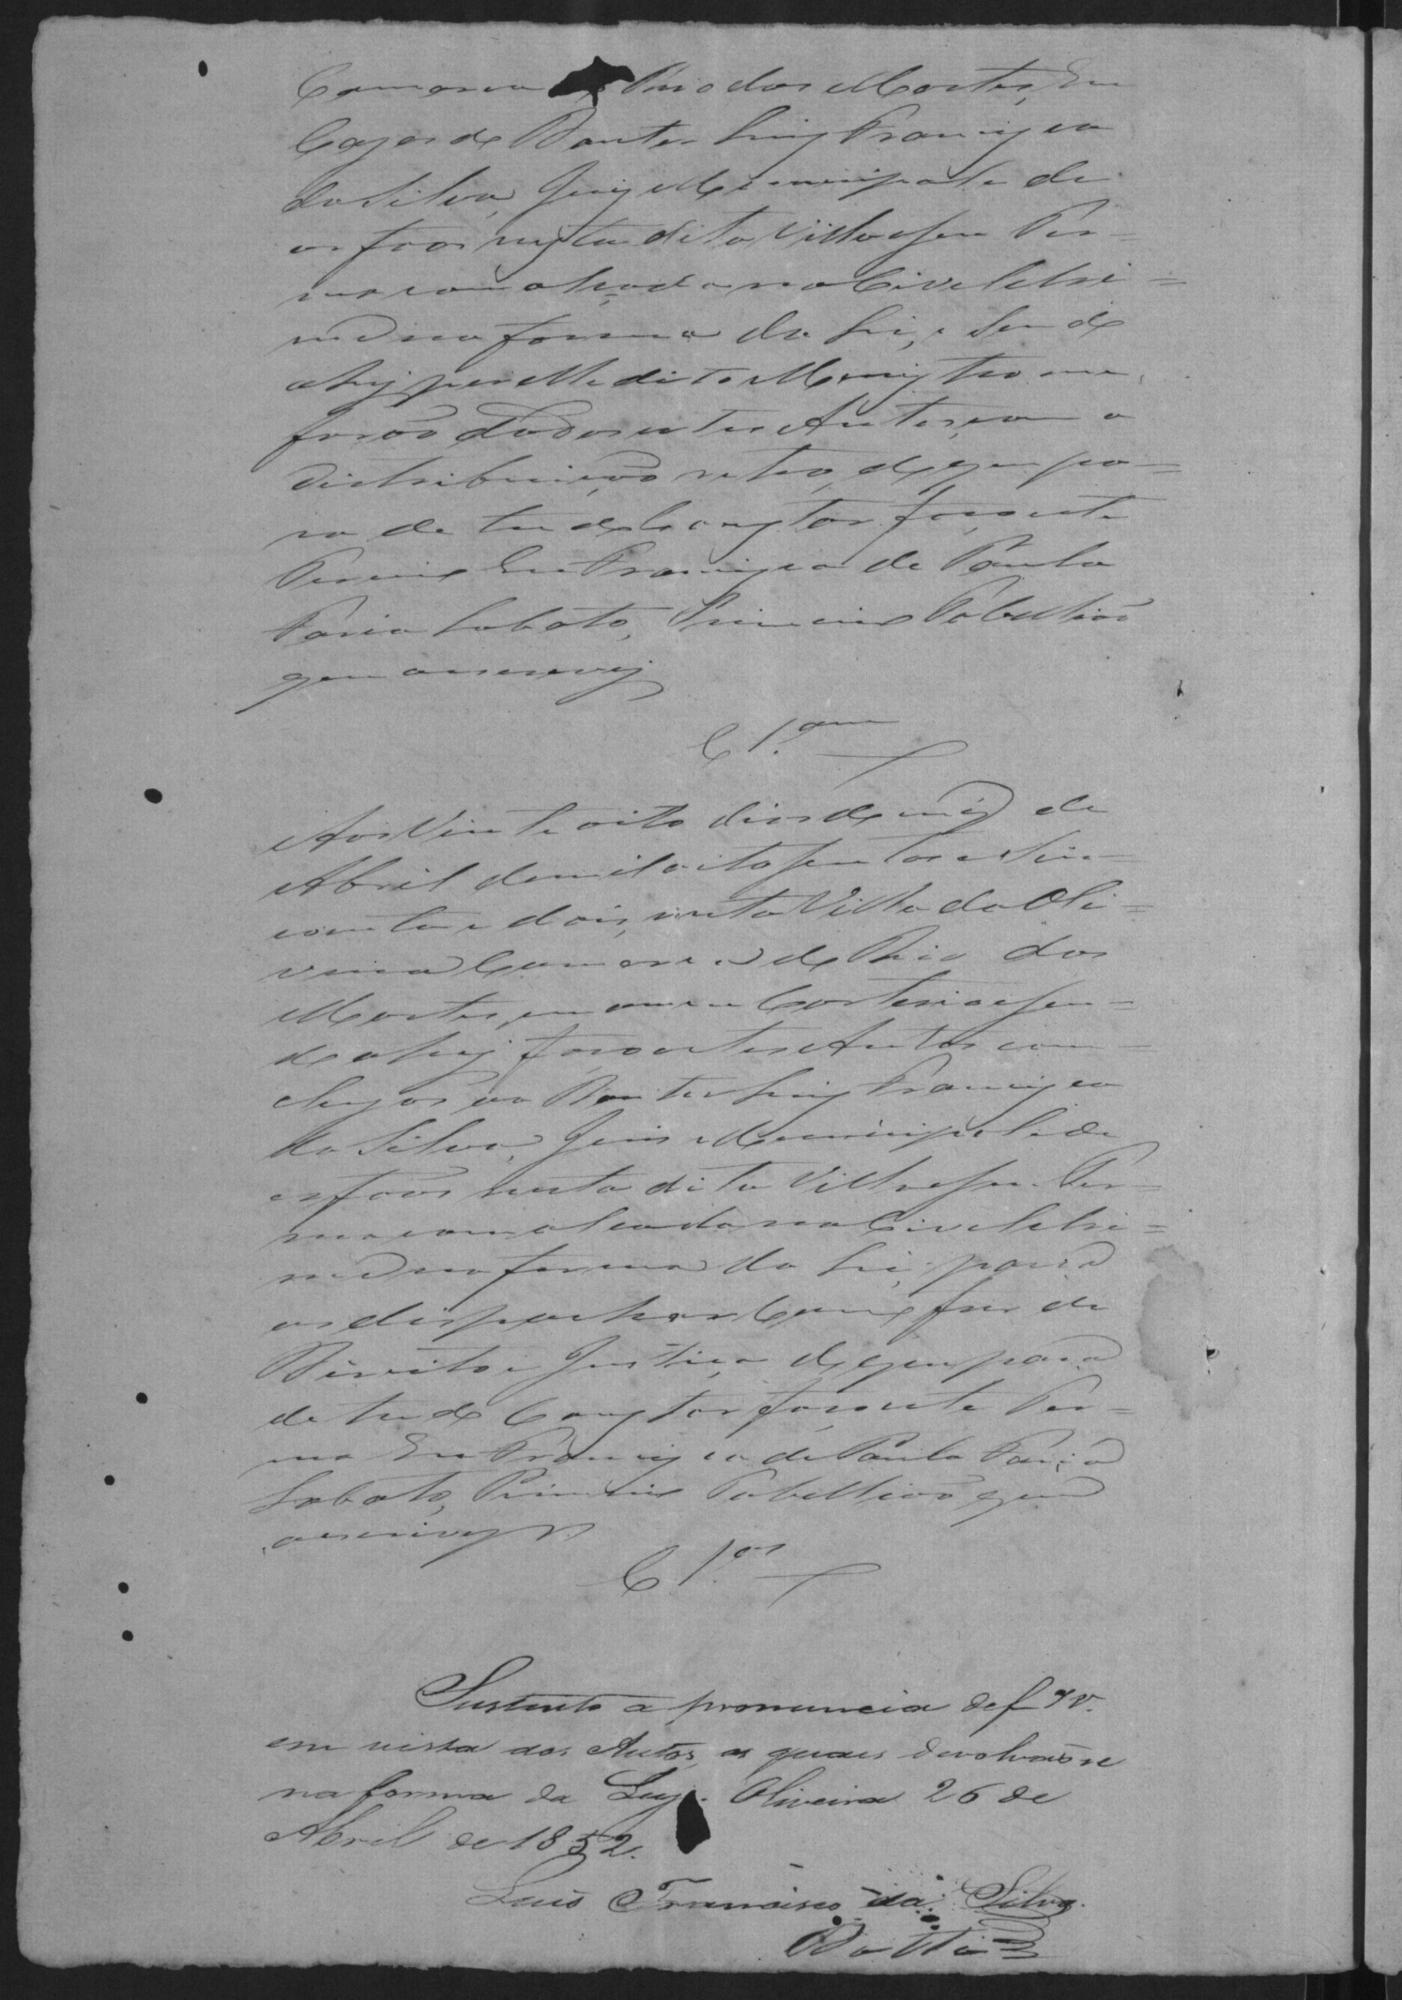 Comarca Rio das Mortes, Em
Cazas de Doutor Luiz Francisco
da Silva, Juiz Municipal e de
orfãos nesta dita Villa e seu Ter=
mo com alçada no Civel e Cri=
me na forma da Lei, e sendo
ahy por elle dito Menistro me
forão dados estes Autos, com a
distribuição retro, de que pa=
ra de tudo Constar faço este
Termo Eu Francisco de Paula
Faria Lobato, Primeiro Tabellião
que o escrevy
Cl.am
Aos Vinte oito dias do mez de
Abril de mil oito sentos e Sin=
coenta e dois, nesta Villa da Oli=
veira Comarca do Rio das
Mortes, em meu Cartorio e sen=
do ahy faço estes Autos con=
cluzos ao Doutor Luiz Francisco
da Silva, Juis Municipal e de
orfãos nesta dita Villa e seu Ter=
mo com alçada no Civel e Cri=
me na forma da Lei, para
os dispachar Como for de
Direito e Justiça, de que para
de tudo Constar faço este Ter=
mo Eu Francisco de Paula Faria
Lobato, Primeiro Tabellião que
o escrevy
Cl.os
Sustento a pronuncia de f
em vista dos Autos, os quaes devolvão-se
na forma da Ley. Oliveira 26 de
Abril de 1852.
Luis Francisco da Silva